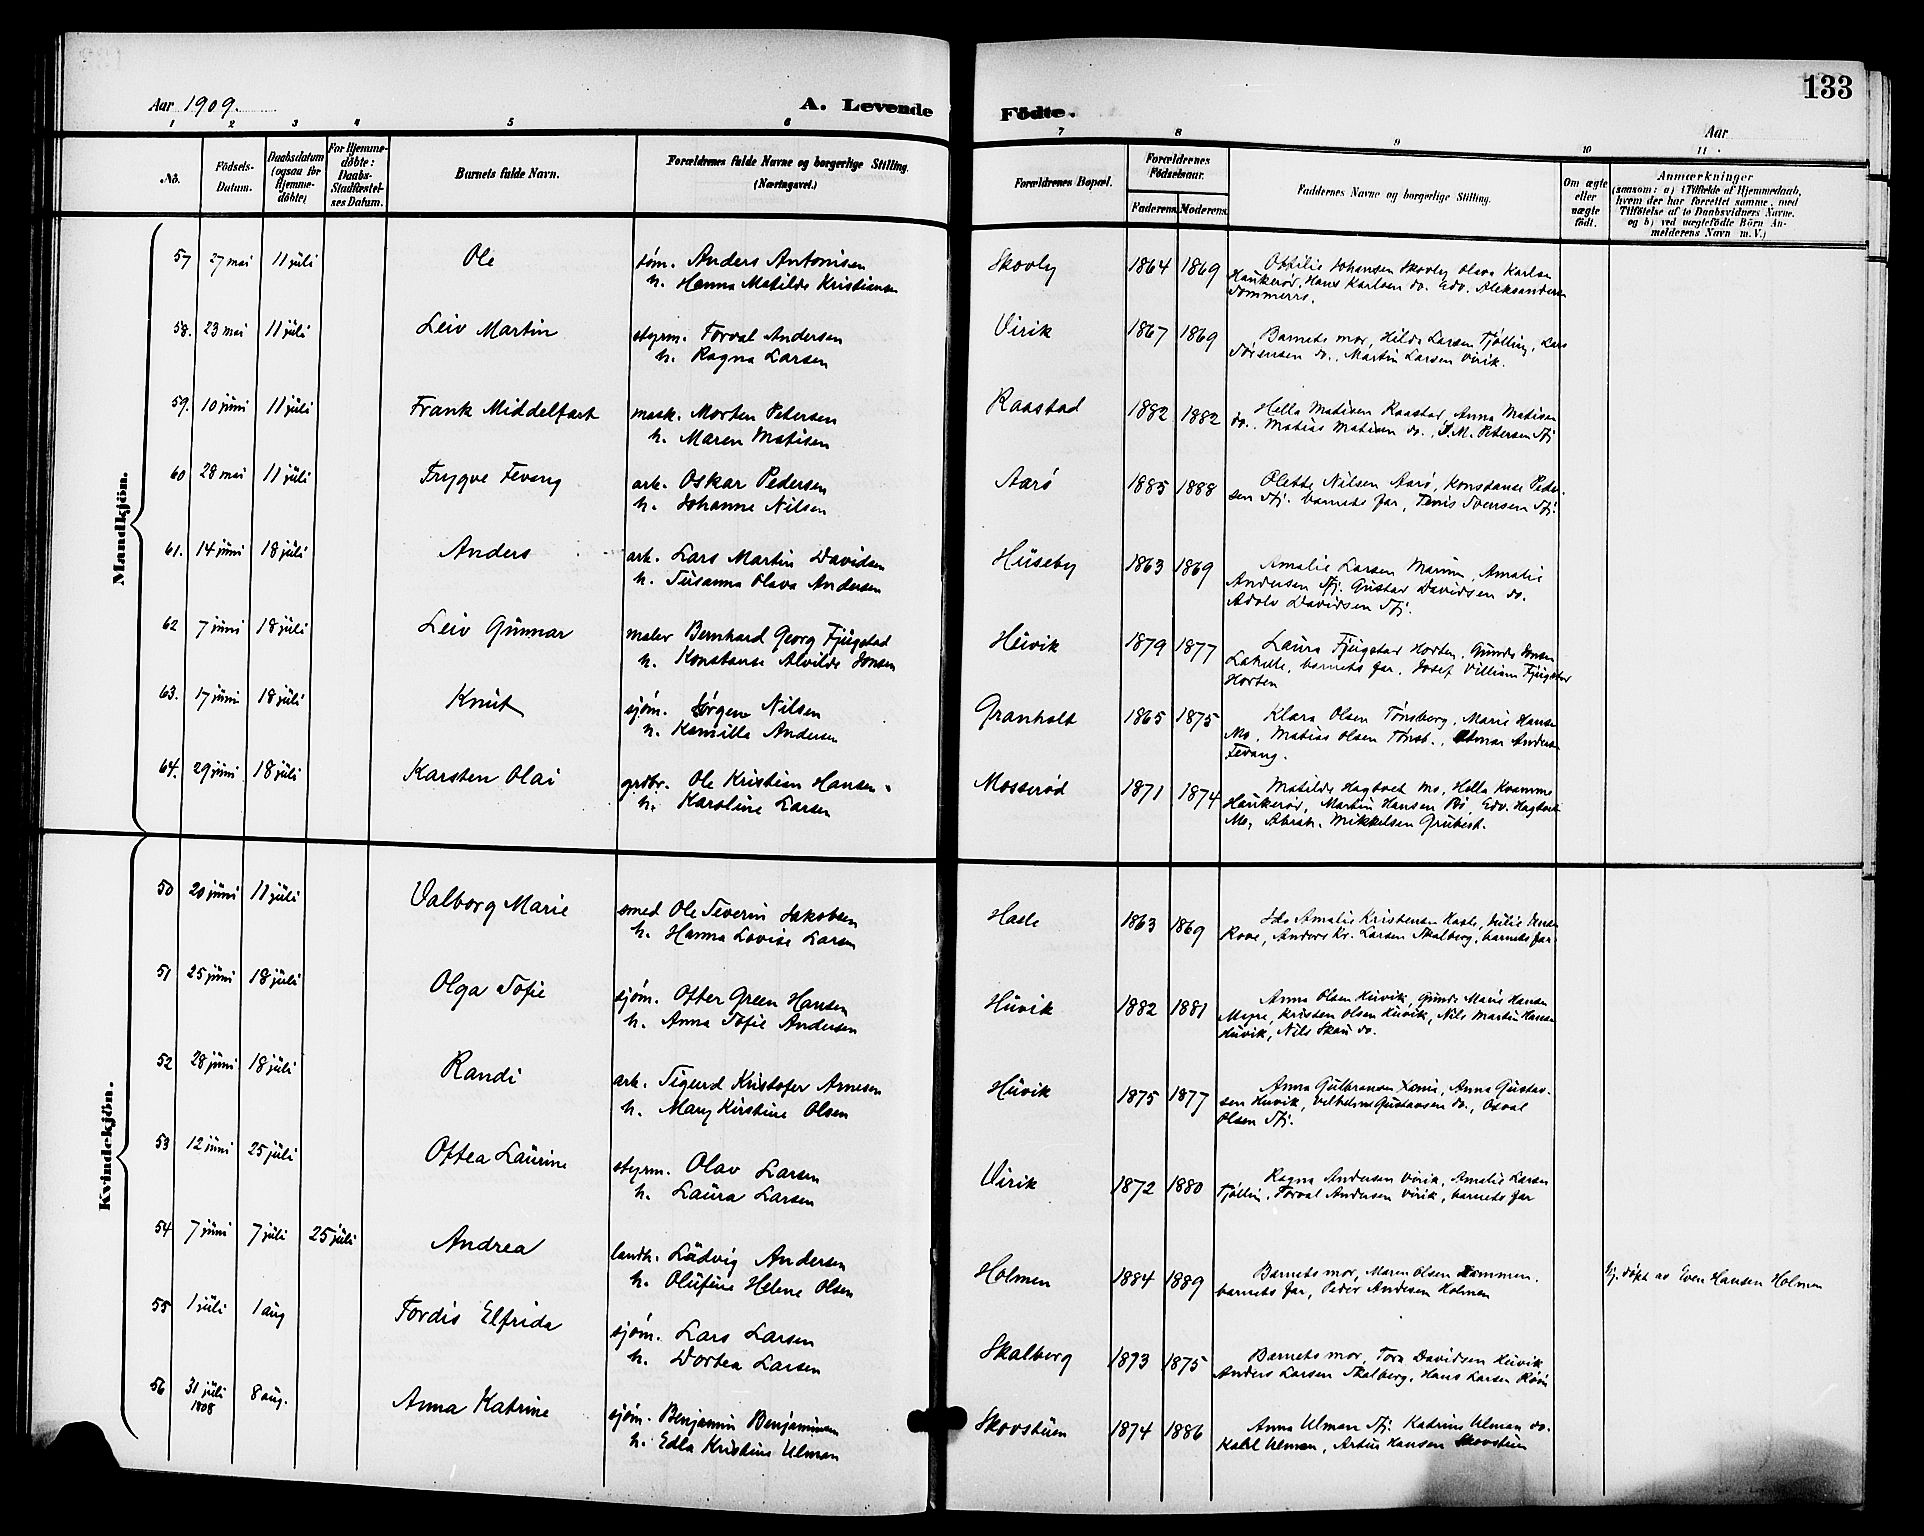 133
Aar 1909.
A. Levende
Födte.
Aar
1 2 3 4 5 6
7 8 9 10 11
No.
Födsels-
Datum.
Daabsdatum
(ogsaa for
Hjemme-
döbte)
For Hjemme-
döbte:
Daabs-
Stadfæstel-
ses Datum.
Barnets fulde Navn.
Forældrenes fulde Navne og borgerlige Stilling.
(Næringsvei.)
Forældrenes Bopæl.
Forældrenes
Födselsaar.
Faderens. Moderens.
Faddernes Navne og borgerlige Stilling.
Om ægte
eller
uægte
födt.
Anmærkninger
(saasom: a) i Tilfælde af Hjemmedaab,
hvem der har forrettet samme, med
Tilföielse af to Daabsvidners Navne.
og b) ved uægtefödte Börn An-
melderens Navn m. V.)
Mandkjön.
57 27 mai 11 juli Ole
søm. Anders Antonisen
h. Hanna Matilde Kristiansen
Skovly 1864 1869
Ottilie Johansen Skovly Olava Karlsen
Haukerød, Hans Karlsen do. Edv. Aleksandersen
58. 23 mai 11 juli Leiv Martin
styrm. Torval Andersen
h. Ragna Larsen
Virik 1867 1869
Barnets mor, Hilda Larsen Tjølling, Lars
Sørensen do., Martin Larsen Virik.
59. 10 juni 11 juli Frank Middelfart
mask. Morten Petersen
h. Maren Matisen
Raastad 1882 1882
Hella Matisen Raastad, Anna Matisen
do., Matias Matisen do., M. Petersen Sfj
60 28 mai 11 juli Trygve Fevang
arb. Oskar Pedersen
h. Johanne Nilsen
Aarø 1885 1888
Olette Nilsen Aarø, Konstanse Peder-
sen Sfj. barnets far, Tenis Svensen Sfj.
61. 14 juni 18 juli Anders
arb. Lars Martin Davidsen
h. Susanna Olava Andersen
Huseby 1863 1869
Amalie Larsen Marum, Amalie
Andersen Sfj. Gustav Davidsen do.
Adolv Davidsen Sfj.
62 7 juni 18 juli Leiv Gunnar
maler Bernhard Georg Fjugstad
h. Konstanse Alvilde Jonsen
Huvik 1879 1877
Laura Fjugstad Horten, Gunda Jonsen
barnets far, Josef Villiam Fjugstad
Horten
63. 17 juni 18 juli Knut
sjøm. Jørgen Nilsen
h. Kamilla Andersen
Granholt 1865 1875
Klara Olsen Tønsberg, Marie Hansen
Mo, Matias Olsen Tønsb., Andersen
Fevang.
64. 29 juni 18 juli Karsten Olai
grdbr. Ole Kristian Hansen
h. Karoline Larsen
Mosserød 1871 1874
Matilde Hagtvet Mo, Hella Kvamme
Haukerød, Martin Hansen Bø, Edv. Hagtvet
Mo, Abrah. Mikkelsen Grubest.
Kvindekjön.
50 20 juni 11 juli Valborg Marie
smed Ole Severin Jakobsen
h. Hanna Lovise Larsen
Hasle 1863 1869
Ida Amalie Kristensen Hasle, Julie Jensen
Rove, Anders Kr. Larsen Skalberg, barnets far
51 25 juni 18 juli Olga Sofie
sjøm. Otter Green Hansen
h. Anna Sofie Andersen
Huvik 1882 1881
Anna Olsen Huvik, Gunda Marie Hansen
Myre, Kristen Olsen Huvik, Nils Martin Hansen
Huvik, Nils Skau do.
52 28 juni 18 juli Randi
arb. Sigurd Kristofer Arnesen
h. Mary Kirstine Olsen
Huvik 1875 1877
Anna Gulbransen, Anna Gustav-
sen Huvik, Vilhelm Gustavsen do., Osval
Olsen Sfj.
53 12 juni 25 juli Ottea Laurine
styrm. Olav Larsen
h. Laura Larsen
Virik 1872 1880
Ragna Andersen Virik, Amalie Larsen
Tjølling, Torval Andersen Virik, barnets far
54 7 juni 7 juli 25 juli Andrea
landh. Ludvig Andersen
h. Olufine Helene Olsen
Holmen 1884 1889
Barnets mor, Maren Olsen Kammen.
barnets far, Peder Andersen Holmen
hj. døpt av Even Hansen Holmen
55 1 juli 1 aug Tordis Elfrida
sjøm. Lars Larsen
h. Dortea Larsen
Skalberg 1873 1875
Barnets mor, Tora Davidsen Huvik
Anders Larsen Skalberg, Hans Larsen
56 31 juli
1908 8 aug. Anna Katrine
sjøm. Benjamin Benjaminsen
h. Edla Kristine Ulman
Skovstuen 1874 1886
Anna Ulman Sfj. Katrine Ulman do.
Karl Ulman, Artur Hansen Skovstuen